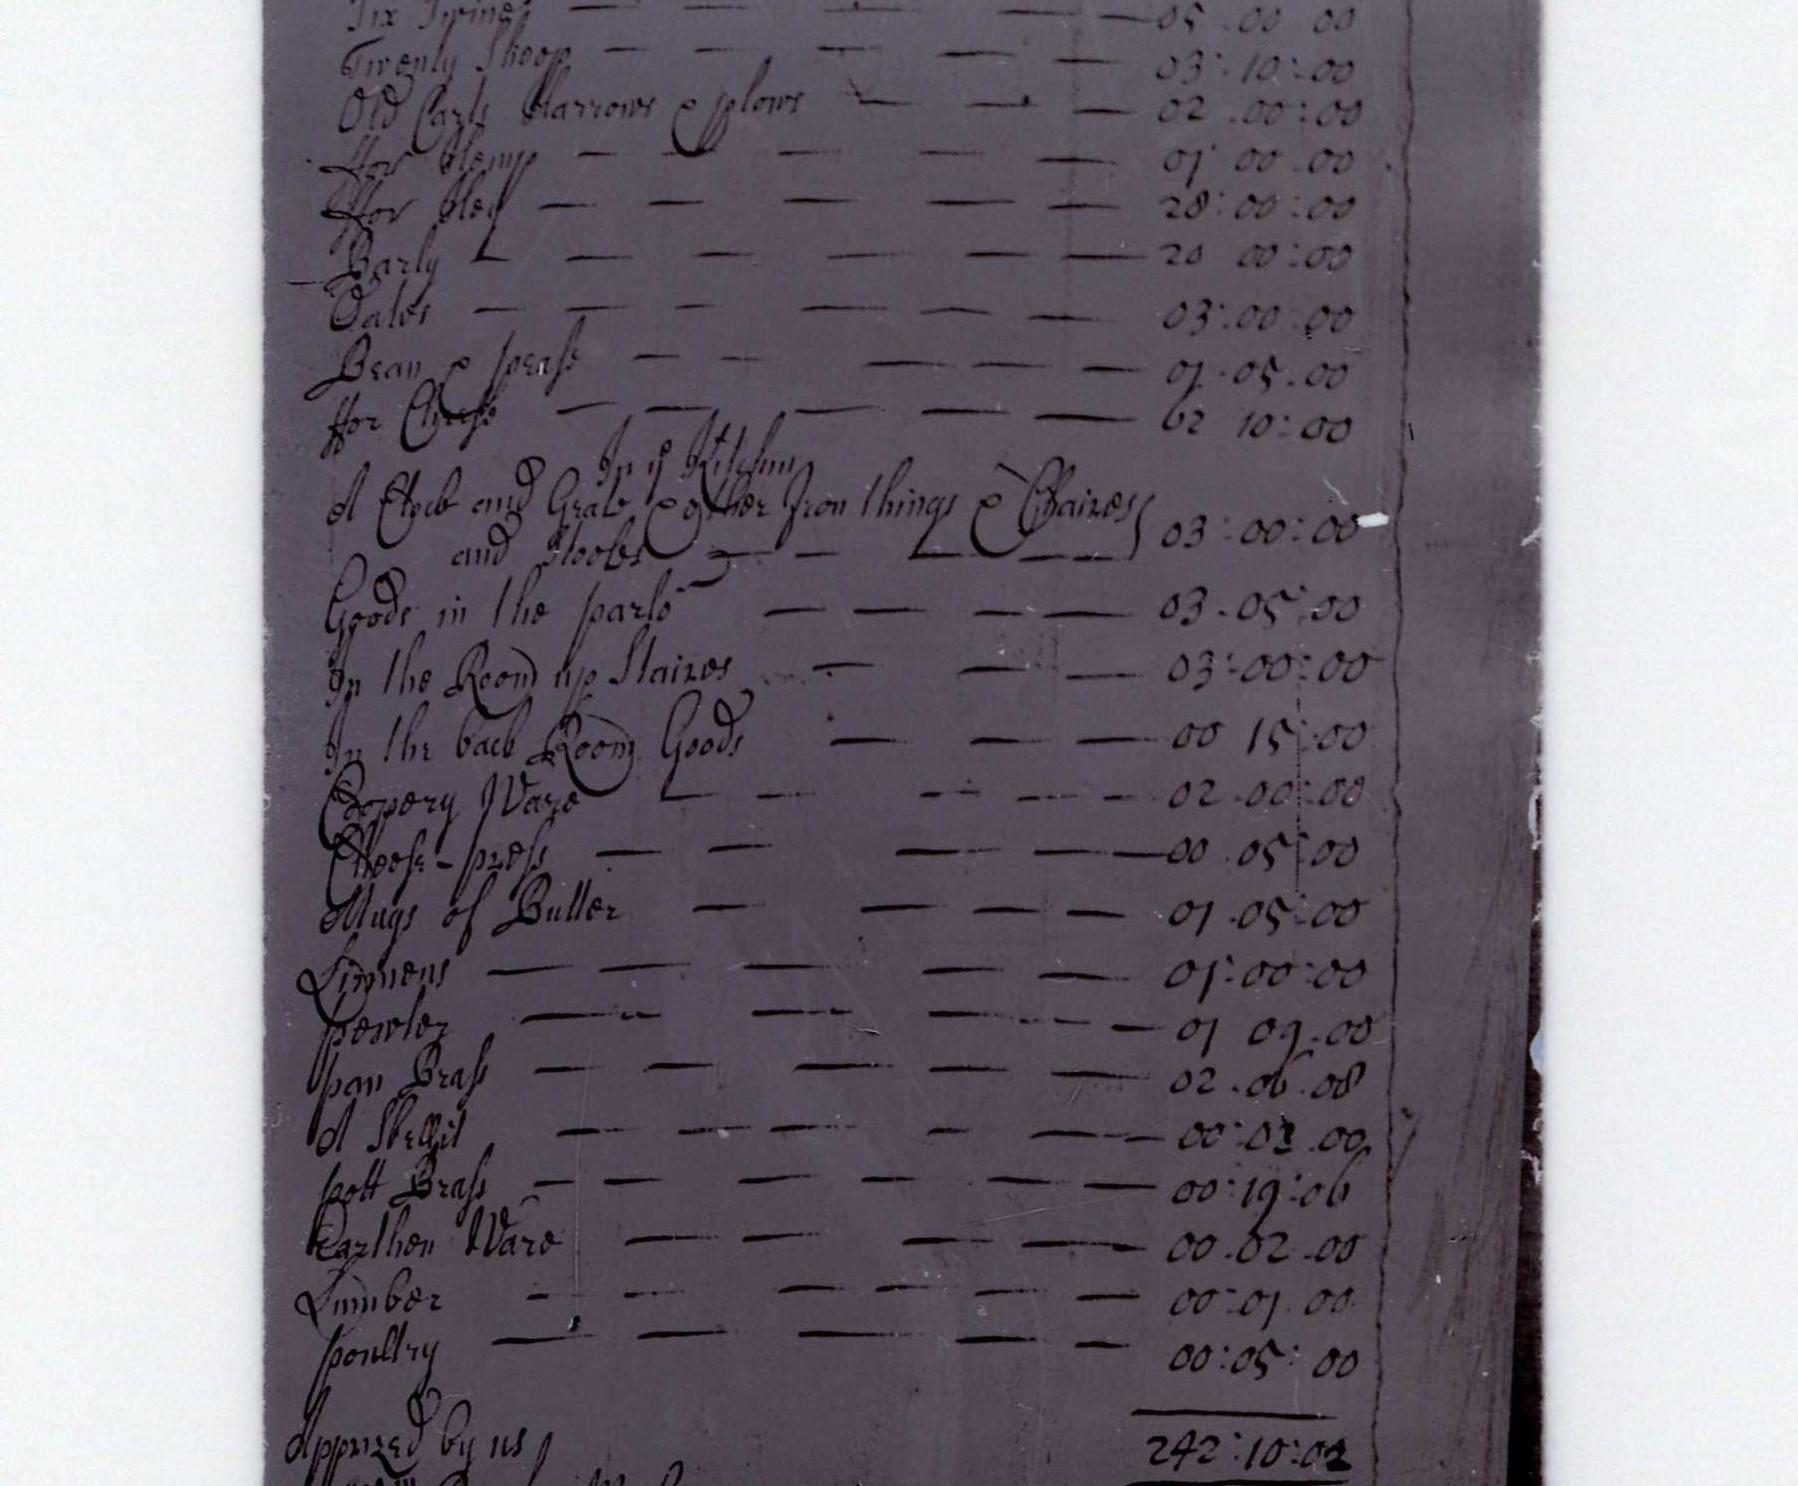 Six Swines — — — — — 05 . 00 00
Twenty Sheep — — — — — 03 : 10 : 00
Old Carts Harrows & plows — — — 02 . 00 : 00
ffor Hemp — — — — — 01 00 . 00
ffor Hey — — — — — 28 : 00 : 00
Barly — — — — — — 20 00 : 00
Oates — — — — — — 03 : 00 : 00
Bean & pease — — — — — 01 . 05 . 00
ffor Cheese — — — — — 02 10 : 00
In ye Kitchin
A Clock and Grate & other Iron things & Chaires
and Stooles — — — — 03 : 00 : 00
Goods in the parlor — — — — 03 . 05 : 00
In the Room up Staires — — — 03 : 00 : 00
In the back Room Goods — — — 00 15 : 00
Coopery Ware — — — — — 02 . 00 : 00
Cheese-press — — — — — 00 . 05 : 00
Mugs of Butter — — — — 01 . 05 : 00
Linnens — — — — — 01 : 00 : 00
pewter — — — — 01 09 . 00
pan Brass — — — — — 02 . 06 . 08
A Skellit — — — — — — 00 : 02 . 00
pott Brass — — — — — — 00 : 19 : 06
Earthen Ware — — — — 00 . 02 . 00
Lumber — — — — — 00 : 01 . 00
poultry — — — — — 00 : 05 : 00
Apprized by us
242 : 10 : 02